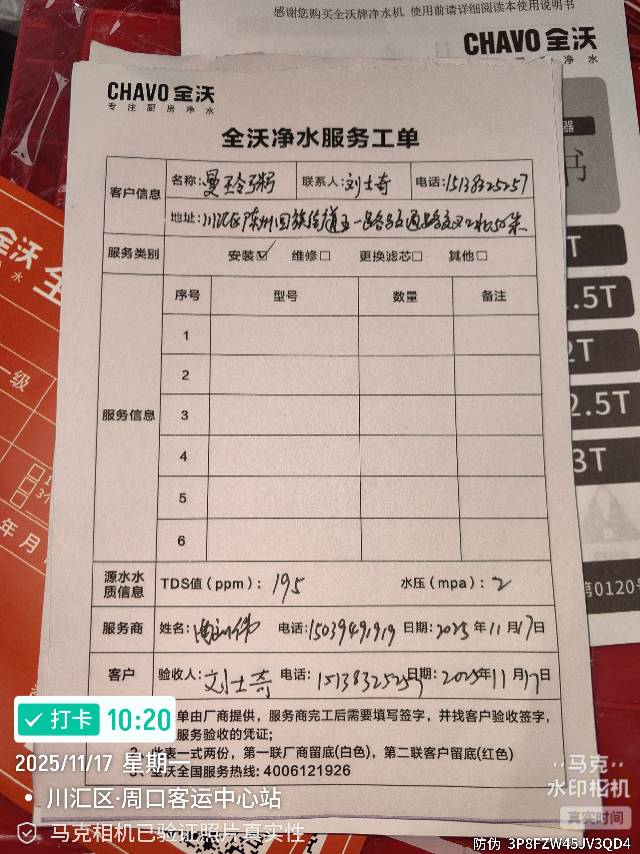 感谢您购买全沃牌净水机 使用前请详细阅读本使用说明书
CHAVO 全沃
净水
CHAVO 全沃
专注厨房净水
全沃净水服务工单
客户信息
名称: 联系人:刘士奇 电话:15138325257
地址:川汇区陈州回族街道五一路与交通路交叉口北50米
服务类别 安装☑ 维修□ 更换滤芯□ 其他□
服务信息
序号 型号 数量 备注
1
2
3
4
5
6
源水水质信息 TDS值(ppm):195 水压(mpa):2
服务商 姓名: 电话:15039491919 日期:2025年11月17日
客户 验收人:刘士奇 电话:15138325257 日期:2025年11月17日
单由厂商提供,服务商完工后需要填写签字,并找客户验收签字,
服务验收的凭证;
2、此表一式两份,第一联厂商留底(白色),第二联客户留底(红色)
3、全沃全国服务热线:4006121926
全沃
水
一级
年 月
器
书
T
.5T
2T
2.5T
3T
第0120号
打卡 10:20
2025/11/17 星期一
川汇区·周口客运中心站
马克相机已验证照片真实性
马克
水印相机
真实时间
防伪 3P8FZW45JV3QD4